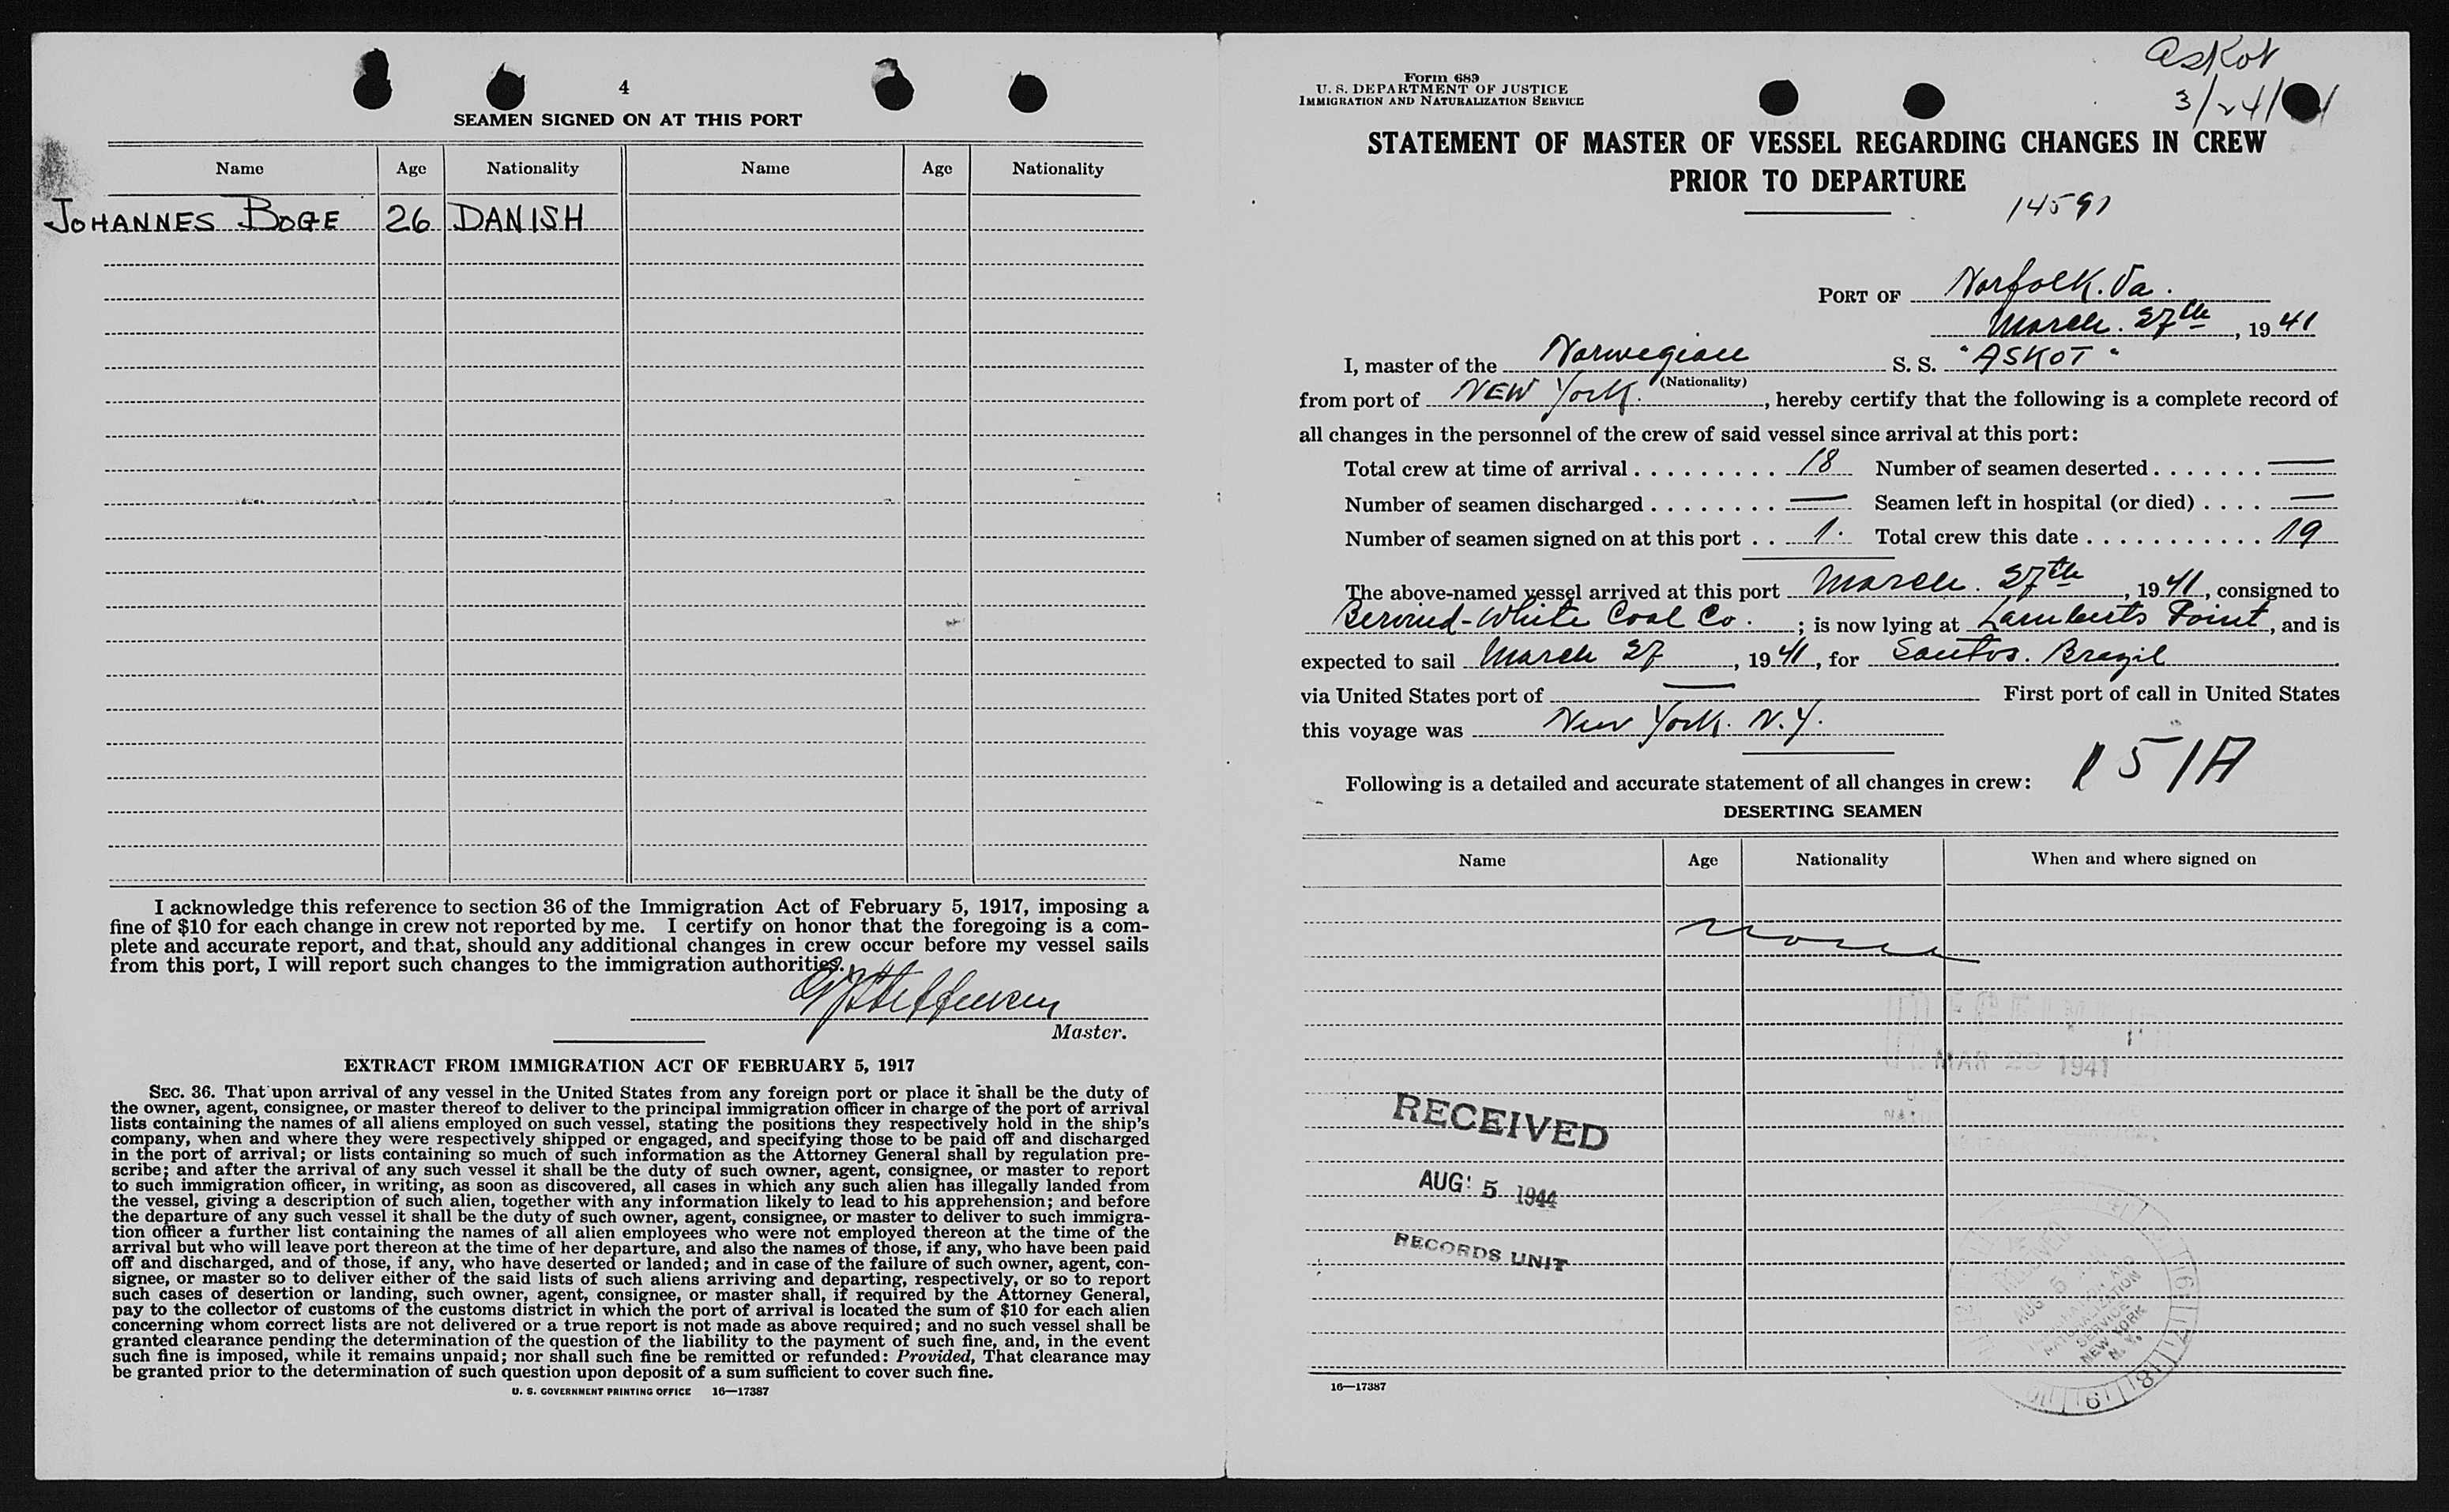 4
SEAMEN SIGNED ON AT THIS PORT
Name Age Nationality Name Age Nationality
JOHANNES BOGE 26 DANISH
I acknowledge this reference to section 36 of the Immigration Act of February 5, 1917, imposing a
fine of $10 for each change in crew not reported by me. I certify on honor that the foregoing is a com-
plete and accurate report, and that, should any additional changes in crew occur before my vessel sails
from this port, I will report such changes to the immigration authorities.
Master.
EXTRACT FROM IMMIGRATION ACT OF FEBRUARY 5, 1917
SEC. 36. That upon arrival of any vessel in the United States from any foreign port or place it shall be the duty of
the owner, agent, consignee, or master thereof to deliver to the principal immigration officer in charge of the port of arrival
lists containing the names of all aliens employed on such vessel, stating the positions they respectively hold in the ship's
company, when and where they were respectively shipped or engaged, and specifying those to be paid off and discharged
in the port of arrival; or lists containing so much of such information as the Attorney General shall by regulation pre-
scribe; and after the arrival of any such vessel it shall be the duty of such owner, agent, consignee, or master to report
to such immigration officer, in writing, as soon as discovered, all cases in which any such alien has illegally landed from
the vessel, giving a description of such alien, together with any information likely to lead to his apprehension; and before
the departure of any such vessel it shall be the duty of such owner, agent, consignee, or master to deliver to such immigra-
tion officer a further list containing the names of all alien employees who were not employed thereon at the time of the
arrival but who will leave port thereon at the time of her departure, and also the names of those, if any, who have been paid
off and discharged, and of those, if any, who have deserted or landed; and in case of the failure of such owner, agent, con-
signee, or master so to deliver either of the said lists of such aliens arriving and departing, respectively, or so to report
such cases of desertion or landing, such owner, agent, consignee, or master shall, if required by the Attorney General,
pay to the collector of customs of the customs district in which the port of arrival is located the sum of $10 for each alien
concerning whom correct lists are not delivered or a true report is not made as above required; and no such vessel shall be
granted clearance pending the determination of the question of the liability to the payment of such fine, and, in the event
such fine is imposed, while it remains unpaid; nor shall such fine be remitted or refunded: Provided, That clearance may
be granted prior to the determination of such question upon deposit of a sum sufficient to cover such fine.
U. S. GOVERNMENT PRINTING OFFICE 16—17387
Askot
3/24/
Form 689
U. S. DEPARTMENT OF JUSTICE
IMMIGRATION AND NATURALIZATION SERVICE
STATEMENT OF MASTER OF VESSEL REGARDING CHANGES IN CREW
PRIOR TO DEPARTURE
14591
PORT OF Norfolk. Va.
March. 27th, 1941
I, master of the Norwegian S. S. "ASKOT"
(Nationality)
from port of NEW York., hereby certify that the following is a complete record of
all changes in the personnel of the crew of said vessel since arrival at this port:
Total crew at time of arrival . . . . . . . . . 18 Number of seamen deserted . . . . . . . —
Number of seamen discharged . . . . . . . . — Seamen left in hospital (or died) . . . . —
Number of seamen signed on at this port . . 1. Total crew this date . . . . . . . . . . . 19
The above-named vessel arrived at this port March. 27th, 1941, consigned to
Berwind-White Coal Co.; is now lying at Lamberts Point, and is
expected to sail March 27, 1941, for Santos. Brazil
via United States port of — First port of call in United States
this voyage was New York. N.Y.
Following is a detailed and accurate statement of all changes in crew: 151A
DESERTING SEAMEN
Name Age Nationality When and where signed on
None
MAR 1941
RECEIVED
AUG 5 1944
RECORDS UNIT
RECEIVED
AUG 5
IMMIGRATION AND
NATURALIZATION
SERVICE
NEW YORK
N. Y.
16—17387